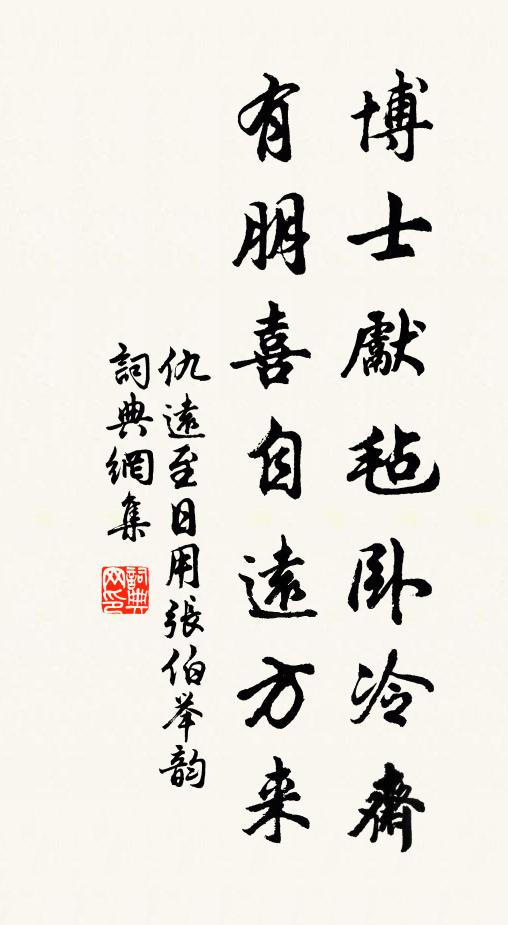 博士獻毡卧冷齋
有朋喜自遠方来
仇遠至日用張伯举韵
詞典網集
詞典网印